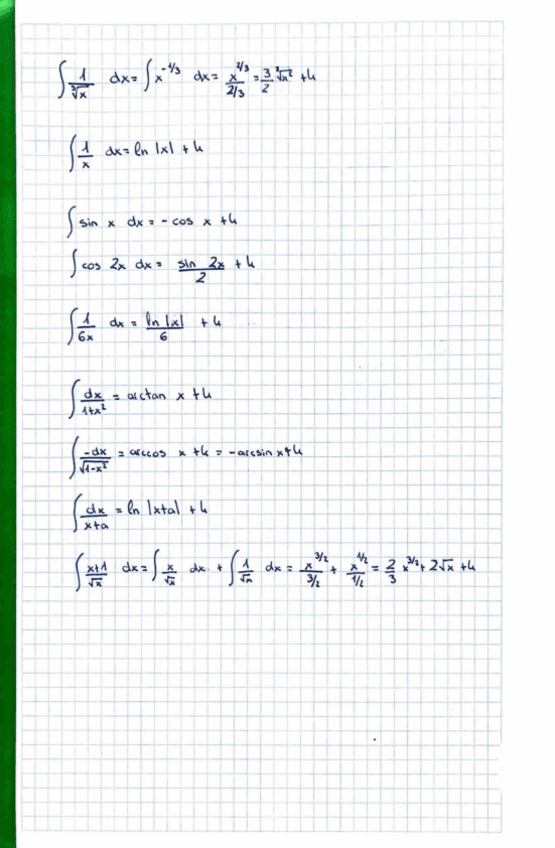 ∫ 1/∛x dx = ∫ x^(-1/3) dx = x^(2/3)/(2/3) = 3/2 ∛x² + k
∫ 1/x dx = ln |x| + k
∫ sin x dx = - cos x + k
∫ cos 2x dx = sin 2x/2 + k
∫ 1/6x dx = ln |x|/6 + k
∫ dx/1+x² = arctan x + k
∫ -dx/√1-x² = arccos x + k = - arcsin x + k
∫ dx/x+a = ln |x+a| + k
∫ x+1/√x dx = ∫ x/√x dx + ∫ 1/√x dx = x^(3/2)/(3/2) + x^(1/2)/(1/2) = 2/3 x^(3/2) + 2√x + k